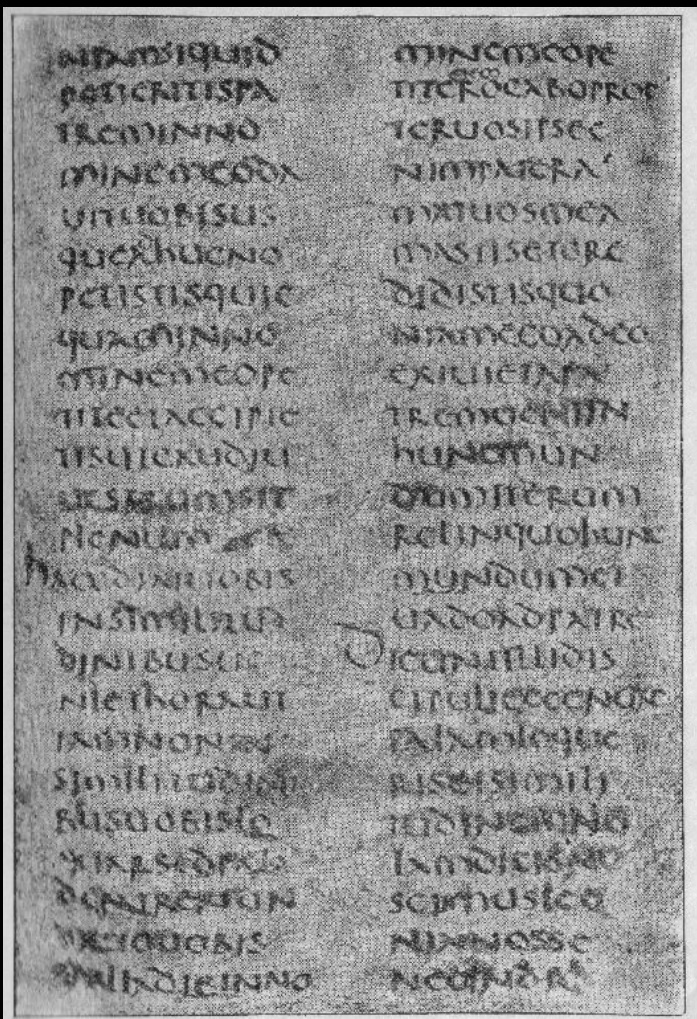 NIAMSIQUID
PETIERITISPA
TREMINNO
MINEMEODA
UITUOBISUS
QUEADHUCNO
PETISTISQUIC
QUAMINNO
MINEMEOPE
TITEETACCIPIE
TISUTGAUDIU
UESTRUMSIT
PLENUM
HAECDIXIUOBIS
INSIMILITU
DINIBUSUE
NIETHORAUT
IAMNONIN
SIMILITUDINI
BUSUOBISLO
QUARSEDPALA
UOBIS
INILLADIEINNO
MINEMEOPE
EGO
TITEROGABOPROP
TERUOSIPSEE
NIMPATERA
MATUOSMEA
MASTISETCRE
DIDISTISQUO
NIAMEGOADEO
EXIUIETAPA
TREMUENIIN
HUNCMUN
DUMITERUM
RELINQUOHUNC
MUNDUMET
UADOADPATRE
DICUNTILLIDIS
CIPULIECCENUNC
PALAMLOQUE
RISETSIMILI
TUDINEMNO
SCIMUSQUO